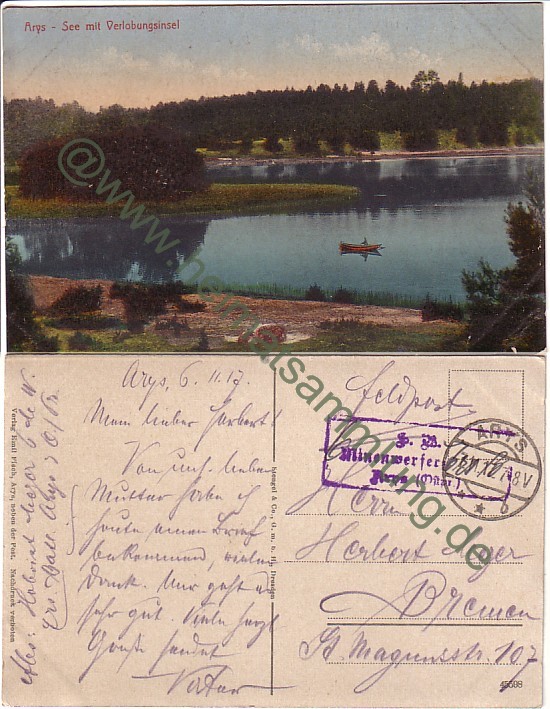 Arys - See mit Verlobungsinsel
@www.heimatsammlung.de
Arys, 6. 11. 17.
Mein lieber Herbert!
Von uns. lieben
Mutter habe ich
heute einen Brief
bekommen, vielen
Dank. Mir geht es
sehr gut. Viele herzl.
Grüße sendet
Vater
Abs:
Ers. Batl. Arys
Verlag Emil Plaga, Arys, neben der Post. Nachdruck verboten
Stengel & Co., G. m. b. H., Dresden
Feldpost
S. B.
Minenwerfer
Arys (Ostpr.)
ARYS
7-8V
* * b
Herrn
Herbert
Bremen
St. Magnusstr. 107
45598